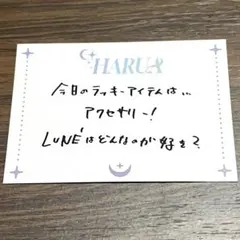 HARUA
今日のラッキーアイテムは...
アクセサリー!
LUNÉはどんなのが好き?